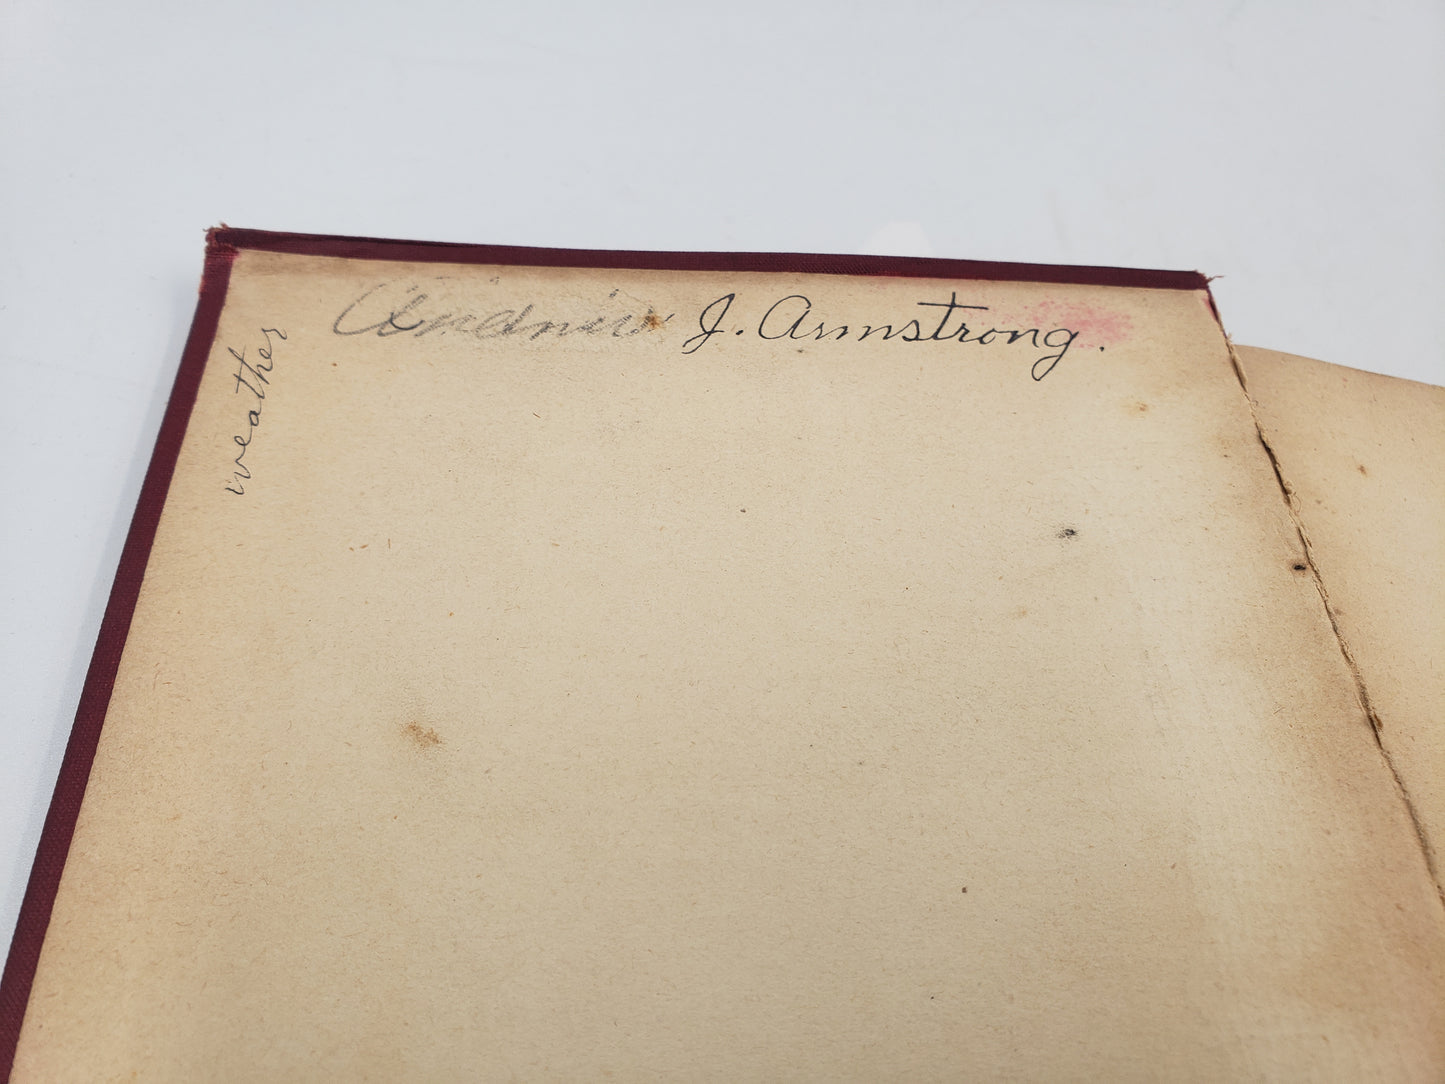 Andrew J. Armstrong.
weather